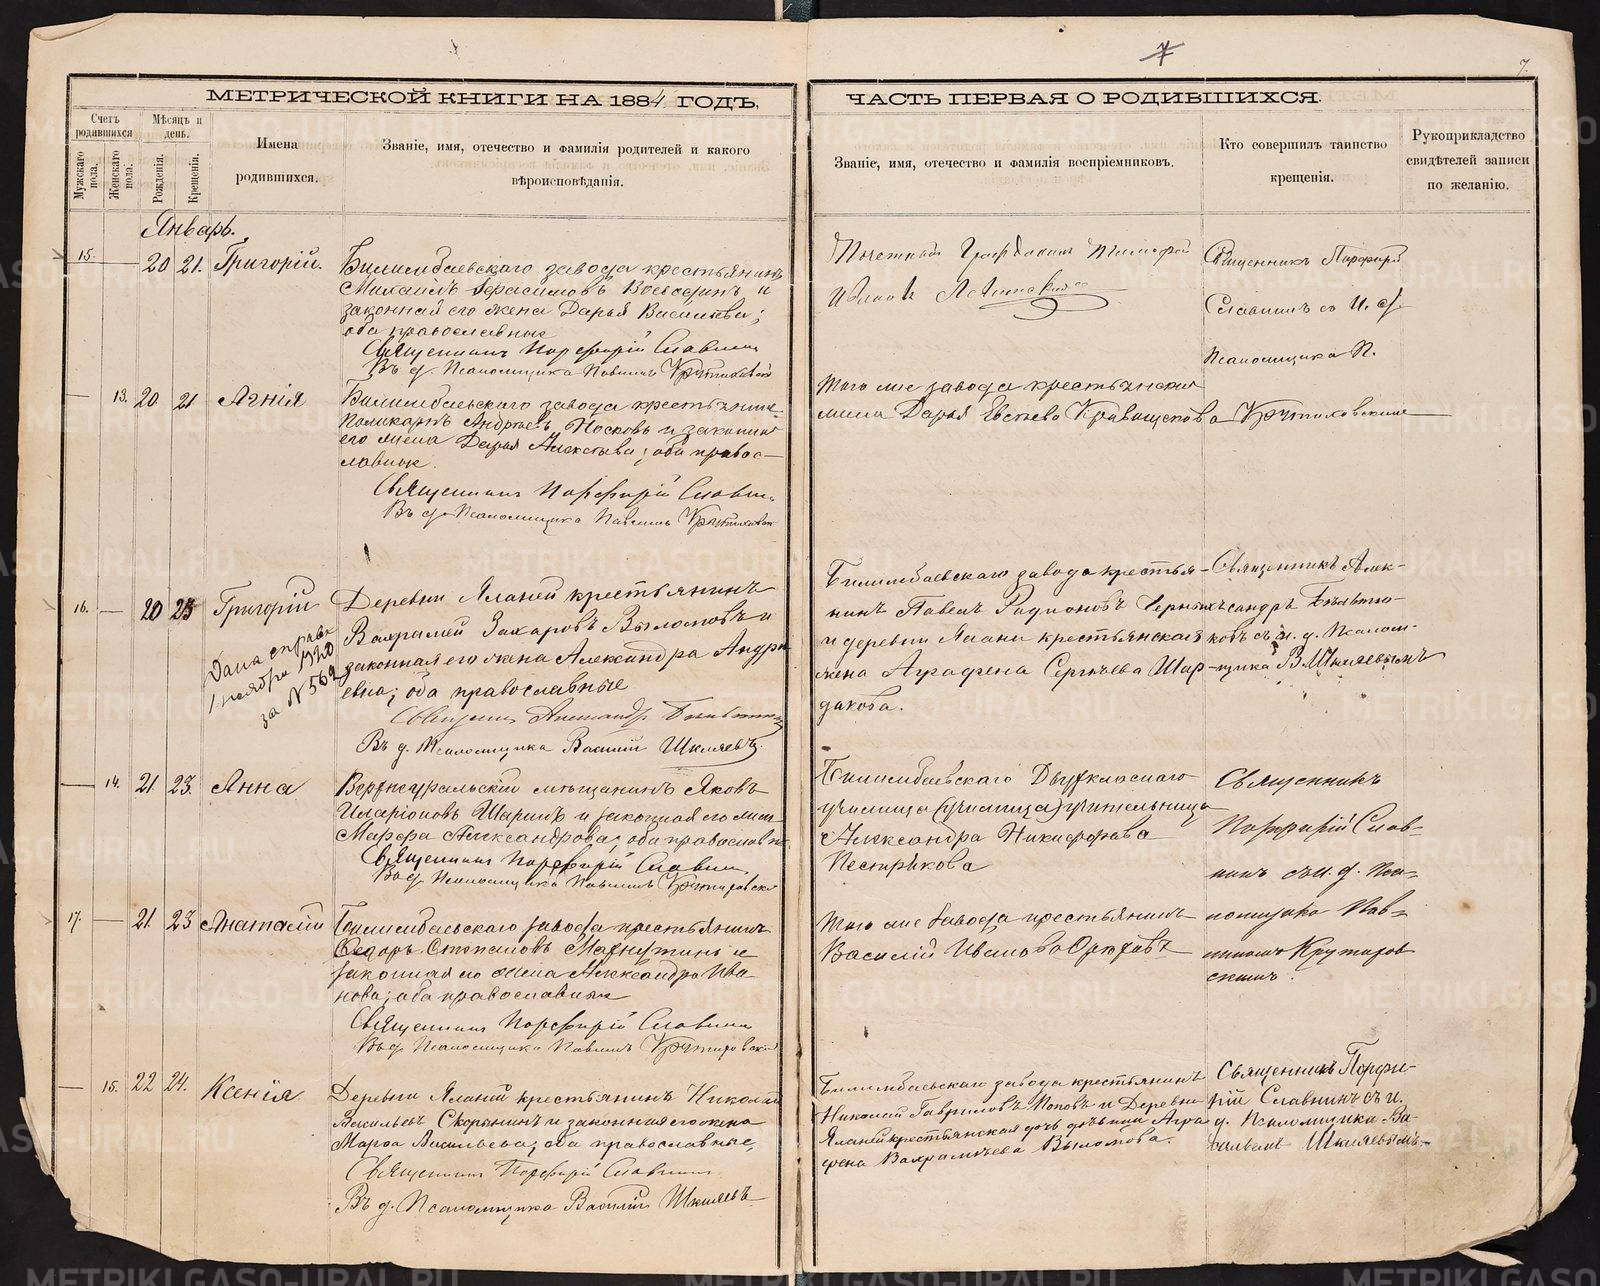 7
7.
МЕТРИЧЕСКОЙ КНИГИ НА 1884 ГОДЪ,
ЧАСТЬ ПЕРВАЯ О РОДИВШИХСЯ.
Счетъ родившихся
Мужскаго пола.
Женскаго пола.
Мѣсяцъ и день.
Рожденія.
Крещенія.
Имена родившихся.
Званіе, имя, отечество и фамилія родителей и какого вѣроисповѣданія.
Званіе, имя, отечество и фамилія воспріемниковъ.
Кто совершилъ таинство крещенія.
Рукоприкладство свидѣтелей записи по желанію.
Январь.
15. 20 21. Григорій.
Билимбаевскаго завода крестьянинъ
Михаилъ Герасимовъ и
законная его жена Дарья Васильева;
оба православные
Священникъ Порфирій Славнинъ
Въ д. Псаломщика Павлинъ
Почетный Гражданинъ
Священникъ Порфирій
Славнинъ со И. д.
Псаломщика П.
13. 20 21 Агнія
Билимбаевскаго завода крестьянинъ
Поликарпъ Андреевъ Носковъ и законная
его жена Дарья Алексѣева; оба правос-
лавные.
Священникъ Порфирій Славнинъ
Въ д. Псаломщика Павлинъ
Того же завода крестьянская
жена Дарья
16. 20 23 Григорій
Дана справка
1 ноября 1920
за № 562
Деревни Яланей крестьянинъ
Варѳаламей Захаровъ Выломовъ и
законная его жена Александра Андре
евна; оба православные
Священникъ Александръ
Въ д. Псаломщика Василій Шкляевъ.
Билимбаевскаго завода крестья-
нинъ Павелъ Родионовъ Черныхъ
и деревни Ялани крестьянская
жена Аграфена Сергѣева Шар-
дакова.
Священникъ Алек-
сандръ
ковъ съ и. д. Псалом-
щика В. Шкляевымъ
14. 21. 23. Анна
Верхнеуральскій мѣщанинъ Яковъ
Иларіоновъ и законная его жена
Марѳа Александрова; оба православные
Священникъ Порфирій Славнинъ
Въ д. Псаломщика Павлинъ
Билимбаевскаго Двухкласнаго
училища (училища) учительница
Александра Никифорова
Пестрикова
Священникъ
Порфирій Слав-
нинъ съ и. д. Пса-
ломщика Пав-
линомъ
17. 21. 23 Анатолій
Билимбаевскаго завода крестьянинъ
Ѳедоръ Степановъ и
законная его жена Александра Ива-
нова; оба православные
Священникъ Порфирій Славнинъ
Въ д. Псаломщика Павлинъ
Того же завода крестьянинъ
Василій Ивановъ
15. 22 24. Ксенія
Деревни Яланей крестьянинъ Николай
Васильевъ Скорынинъ и законная его жена
Марѳа Васильева; оба православные,
Священникъ Порфирій Славнинъ
Въ д. Псаломщика Василій Шкляевъ.
Билимбаевскаго завода крестьянинъ
Николай Гавриловъ Поповъ и Деревни
Яланей крестьянская дочь дѣвица Агра
фена Выломова.
Священникъ Порфи-
рій Славнинъ съ и.
д. Псаломщика Ва-
силіемъ Шкляевымъ
METRIKI.GASO-URAL.RU